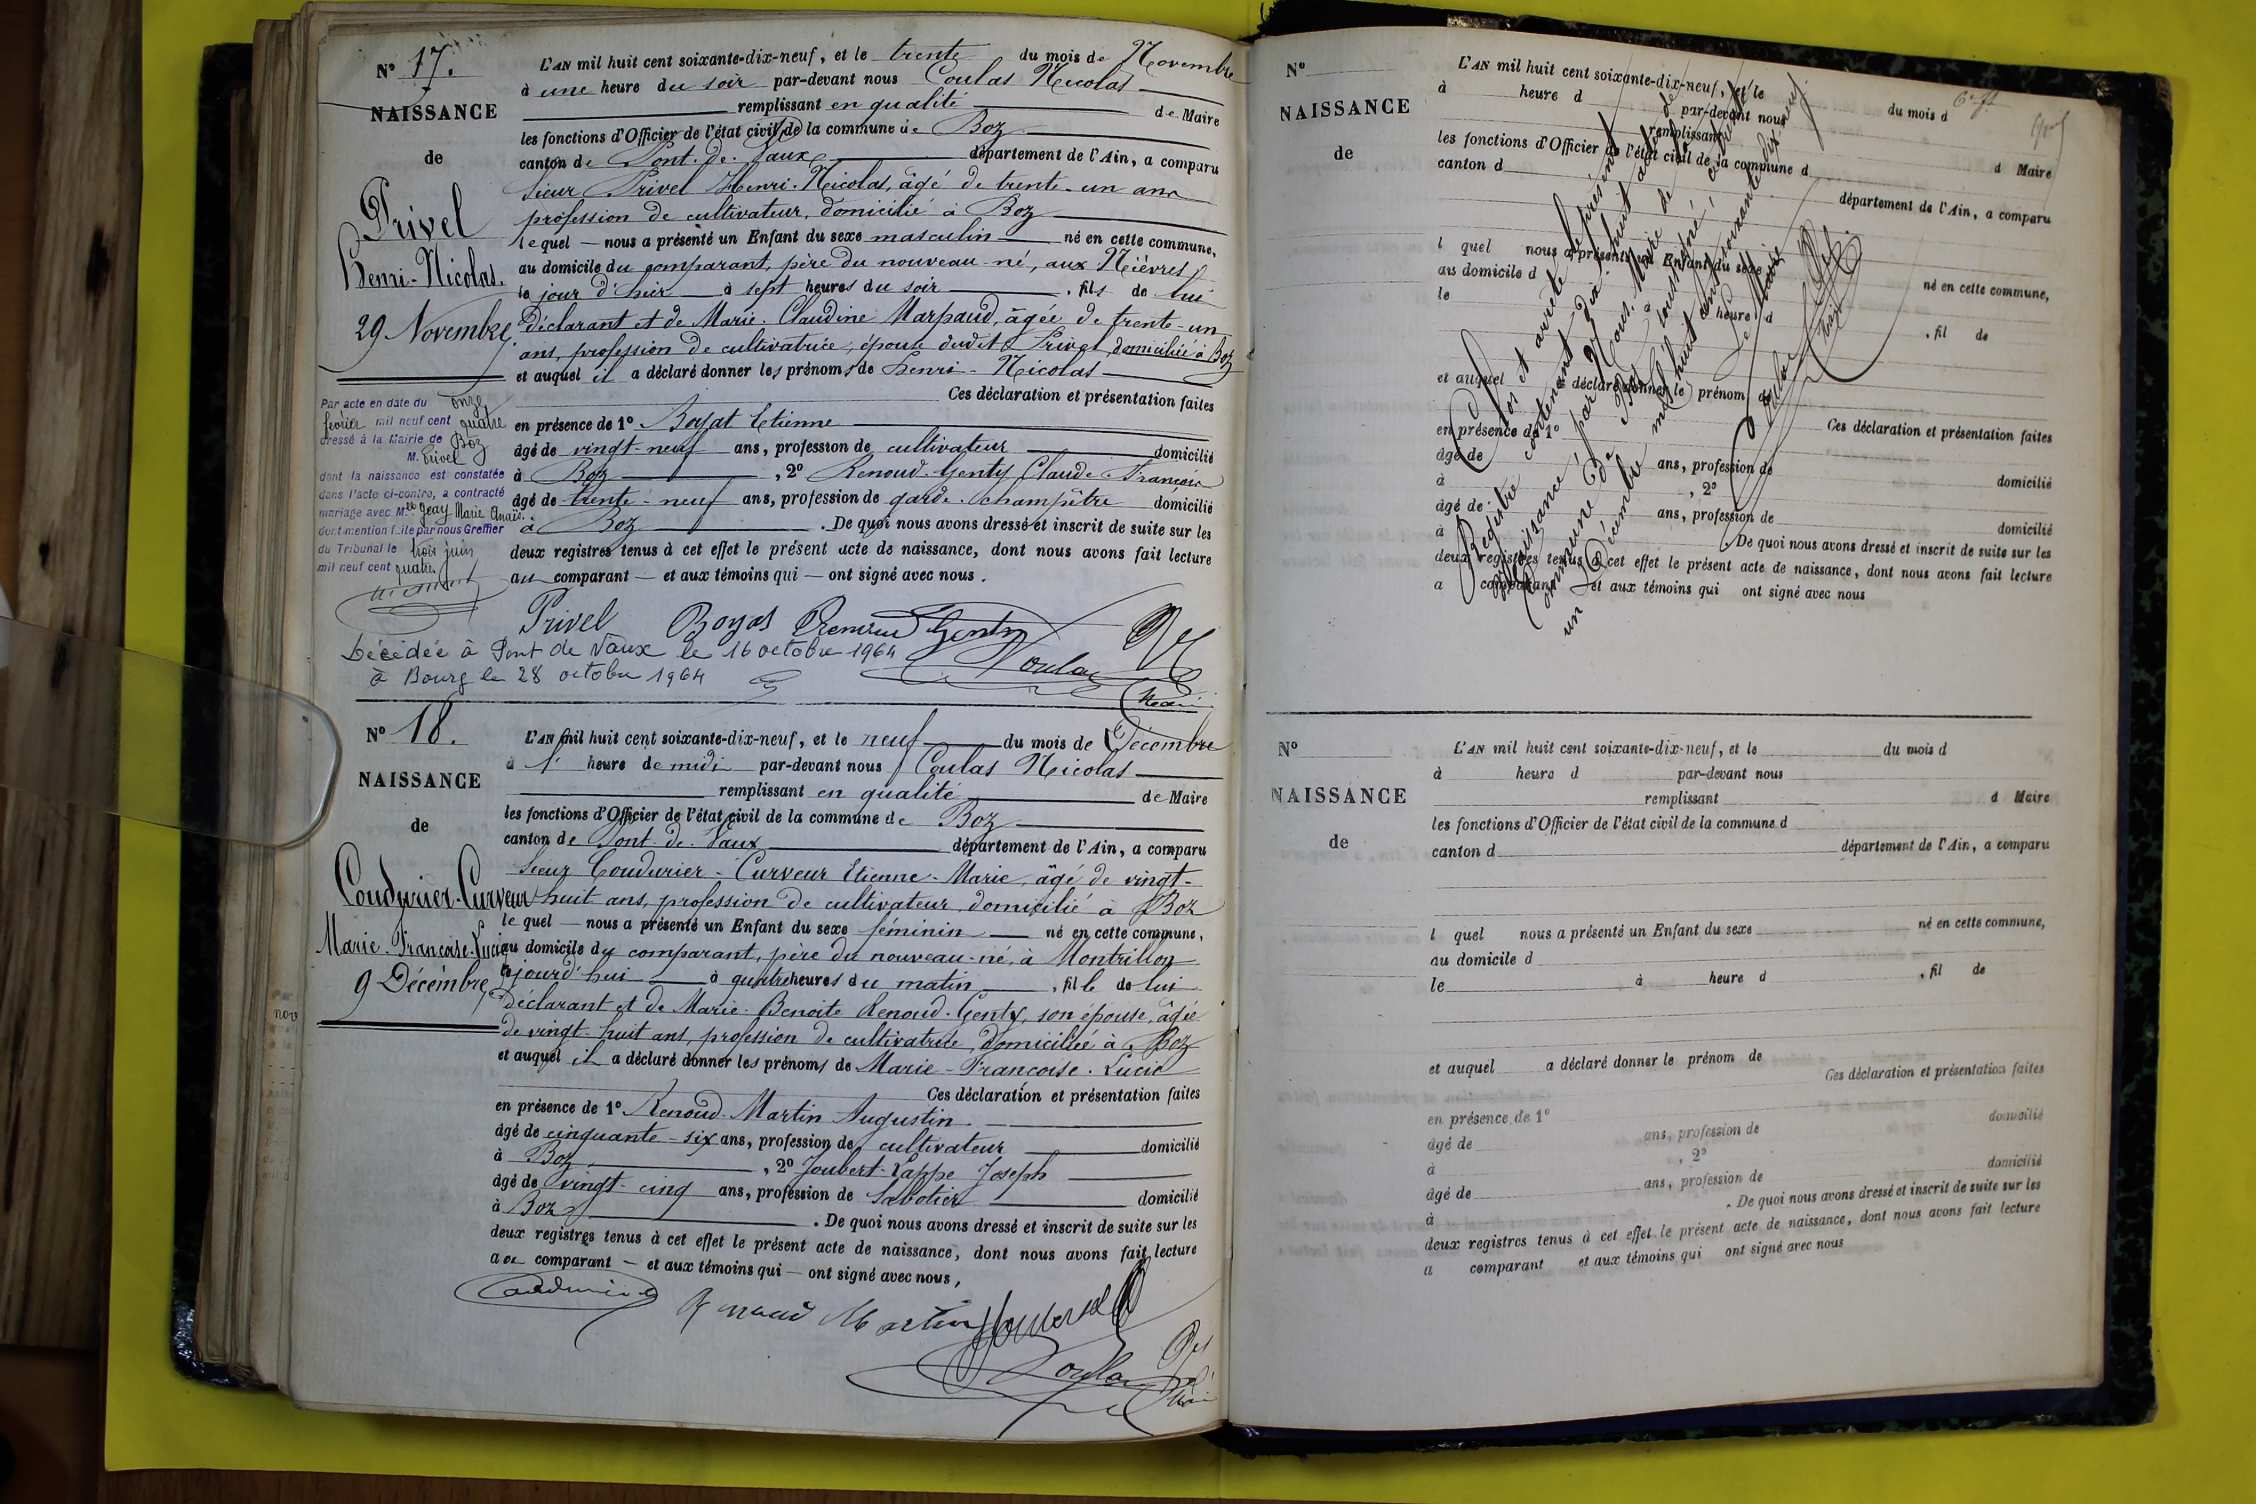 N° 17.
NAISSANCE
de
Privel
Henri-Nicolas.
29 Novembre
L'AN mil huit cent soixante-dix-neuf, et le trente du mois de Novembre
à une heure du soir par-devant nous Coulas Nicolas
remplissant en qualité de Maire
les fonctions d'Officier de l'état civil de la commune de Boz
canton de Pont-de-Vaux département de l'Ain, a comparu
Sieur Privel Henri-Nicolas, âgé de trente-un ans
profession de cultivateur, domicilié à Boz
lequel — nous a présenté un Enfant du sexe masculin né en cette commune,
au domicile du comparant, père du nouveau-né, aux Nièvres,
le jour d'hier à sept heures du soir, fils de lui
déclarant et de Marie-Claudine Marpaud, âgée de trente-un
ans, profession de cultivatrice, épouse dudit Privel, domiciliée à Boz
et auquel il a déclaré donner les prénoms de Henri-Nicolas
Ces déclaration et présentation faites
en présence de 1° Boyat Etienne
âgé de vingt-neuf ans, profession de cultivateur domicilié
à Boz, 2° Renoud-Genty Claude François
âgé de trente-neuf ans, profession de garde-champêtre domicilié
à Boz. De quoi nous avons dressé et inscrit de suite sur les
deux registres tenus à cet effet le présent acte de naissance, dont nous avons fait lecture
au comparant — et aux témoins qui — ont signé avec nous.
Par acte en date du onze
février mil neuf cent quatre
dressé à la Mairie de Boz
M. Privel
dont la naissance est constatée
dans l'acte ci-contre, a contracté
mariage avec Mlle Geay Marie Anaïs.
dont mention faite par nous Greffier
du Tribunal le trois juin
mil neuf cent quatre
Privel Boyat Renoud Genty
Coulas
Décédée à Pont de Vaux le 16 octobre 1964
à Bourg le 28 octobre 1964
N° 18.
NAISSANCE
de
Coudurier-Curveur
Marie-Françoise-Lucie
9 Décembre
L'AN mil huit cent soixante-dix-neuf, et le neuf du mois de Décembre
à 1 heure de midi par-devant nous Coulas Nicolas
remplissant en qualité de Maire
les fonctions d'Officier de l'état civil de la commune de Boz
canton de Pont-de-Vaux département de l'Ain, a comparu
Sieur Coudurier-Curveur Etienne-Marie, âgé de vingt-
huit ans, profession de cultivateur, domicilié à Boz
lequel — nous a présenté un Enfant du sexe féminin né en cette commune,
au domicile du comparant, père du nouveau-né, à Montrillon
aujourd'hui à quatre heures du matin, fille de lui
déclarant et de Marie-Benoite Renoud-Genty, son épouse, âgée
de vingt-huit ans, profession de cultivatrice, domiciliée à Boz
et auquel il a déclaré donner les prénoms de Marie-Françoise-Lucie
Ces déclaration et présentation faites
en présence de 1° Renoud-Martin Augustin
âgé de cinquante-six ans, profession de cultivateur domicilié
à Boz, 2° Joubert-Lappe Joseph
âgé de vingt-cinq ans, profession de Sabotier domicilié
à Boz. De quoi nous avons dressé et inscrit de suite sur les
deux registres tenus à cet effet le présent acte de naissance, dont nous avons fait lecture
au comparant — et aux témoins qui — ont signé avec nous,
Coudurier
Renoud Martin
Coulas
nov
N°
NAISSANCE
de
L'AN mil huit cent soixante-dix-neuf, et le du mois d
à heure d par-devant nous
remplissant d Maire
les fonctions d'Officier de l'état civil de la commune d
canton d département de l'Ain, a comparu
l quel nous a présenté un Enfant du sexe né en cette commune,
au domicile d
le à heure d , fil de
et auquel a déclaré donner le prénom de
Ces déclaration et présentation faites
en présence de 1°
âgé de ans, profession de domicilié
à , 2°
âgé de ans, profession de domicilié
à . De quoi nous avons dressé et inscrit de suite sur les
deux registres tenus à cet effet le présent acte de naissance, dont nous avons fait lecture
a comparant et aux témoins qui ont signé avec nous
Clos et arrêté le présent
Registre contenant dix huit actes de
Naissance, par Nous, Maire de la
commune de Boz, soussigné, ce trente
un Décembre mil huit cent soixante dix neuf
Le Maire
Coulas
N°
NAISSANCE
de
L'AN mil huit cent soixante-dix-neuf, et le du mois d
à heure d par-devant nous
remplissant d Maire
les fonctions d'Officier de l'état civil de la commune d
canton d département de l'Ain, a comparu
l quel nous a présenté un Enfant du sexe né en cette commune,
au domicile d
le à heure d , fil de
et auquel a déclaré donner le prénom de
Ces déclaration et présentation faites
en présence de 1°
âgé de ans, profession de domicilié
à , 2°
âgé de ans, profession de domicilié
à . De quoi nous avons dressé et inscrit de suite sur les
deux registres tenus à cet effet le présent acte de naissance, dont nous avons fait lecture
a comparant et aux témoins qui ont signé avec nous